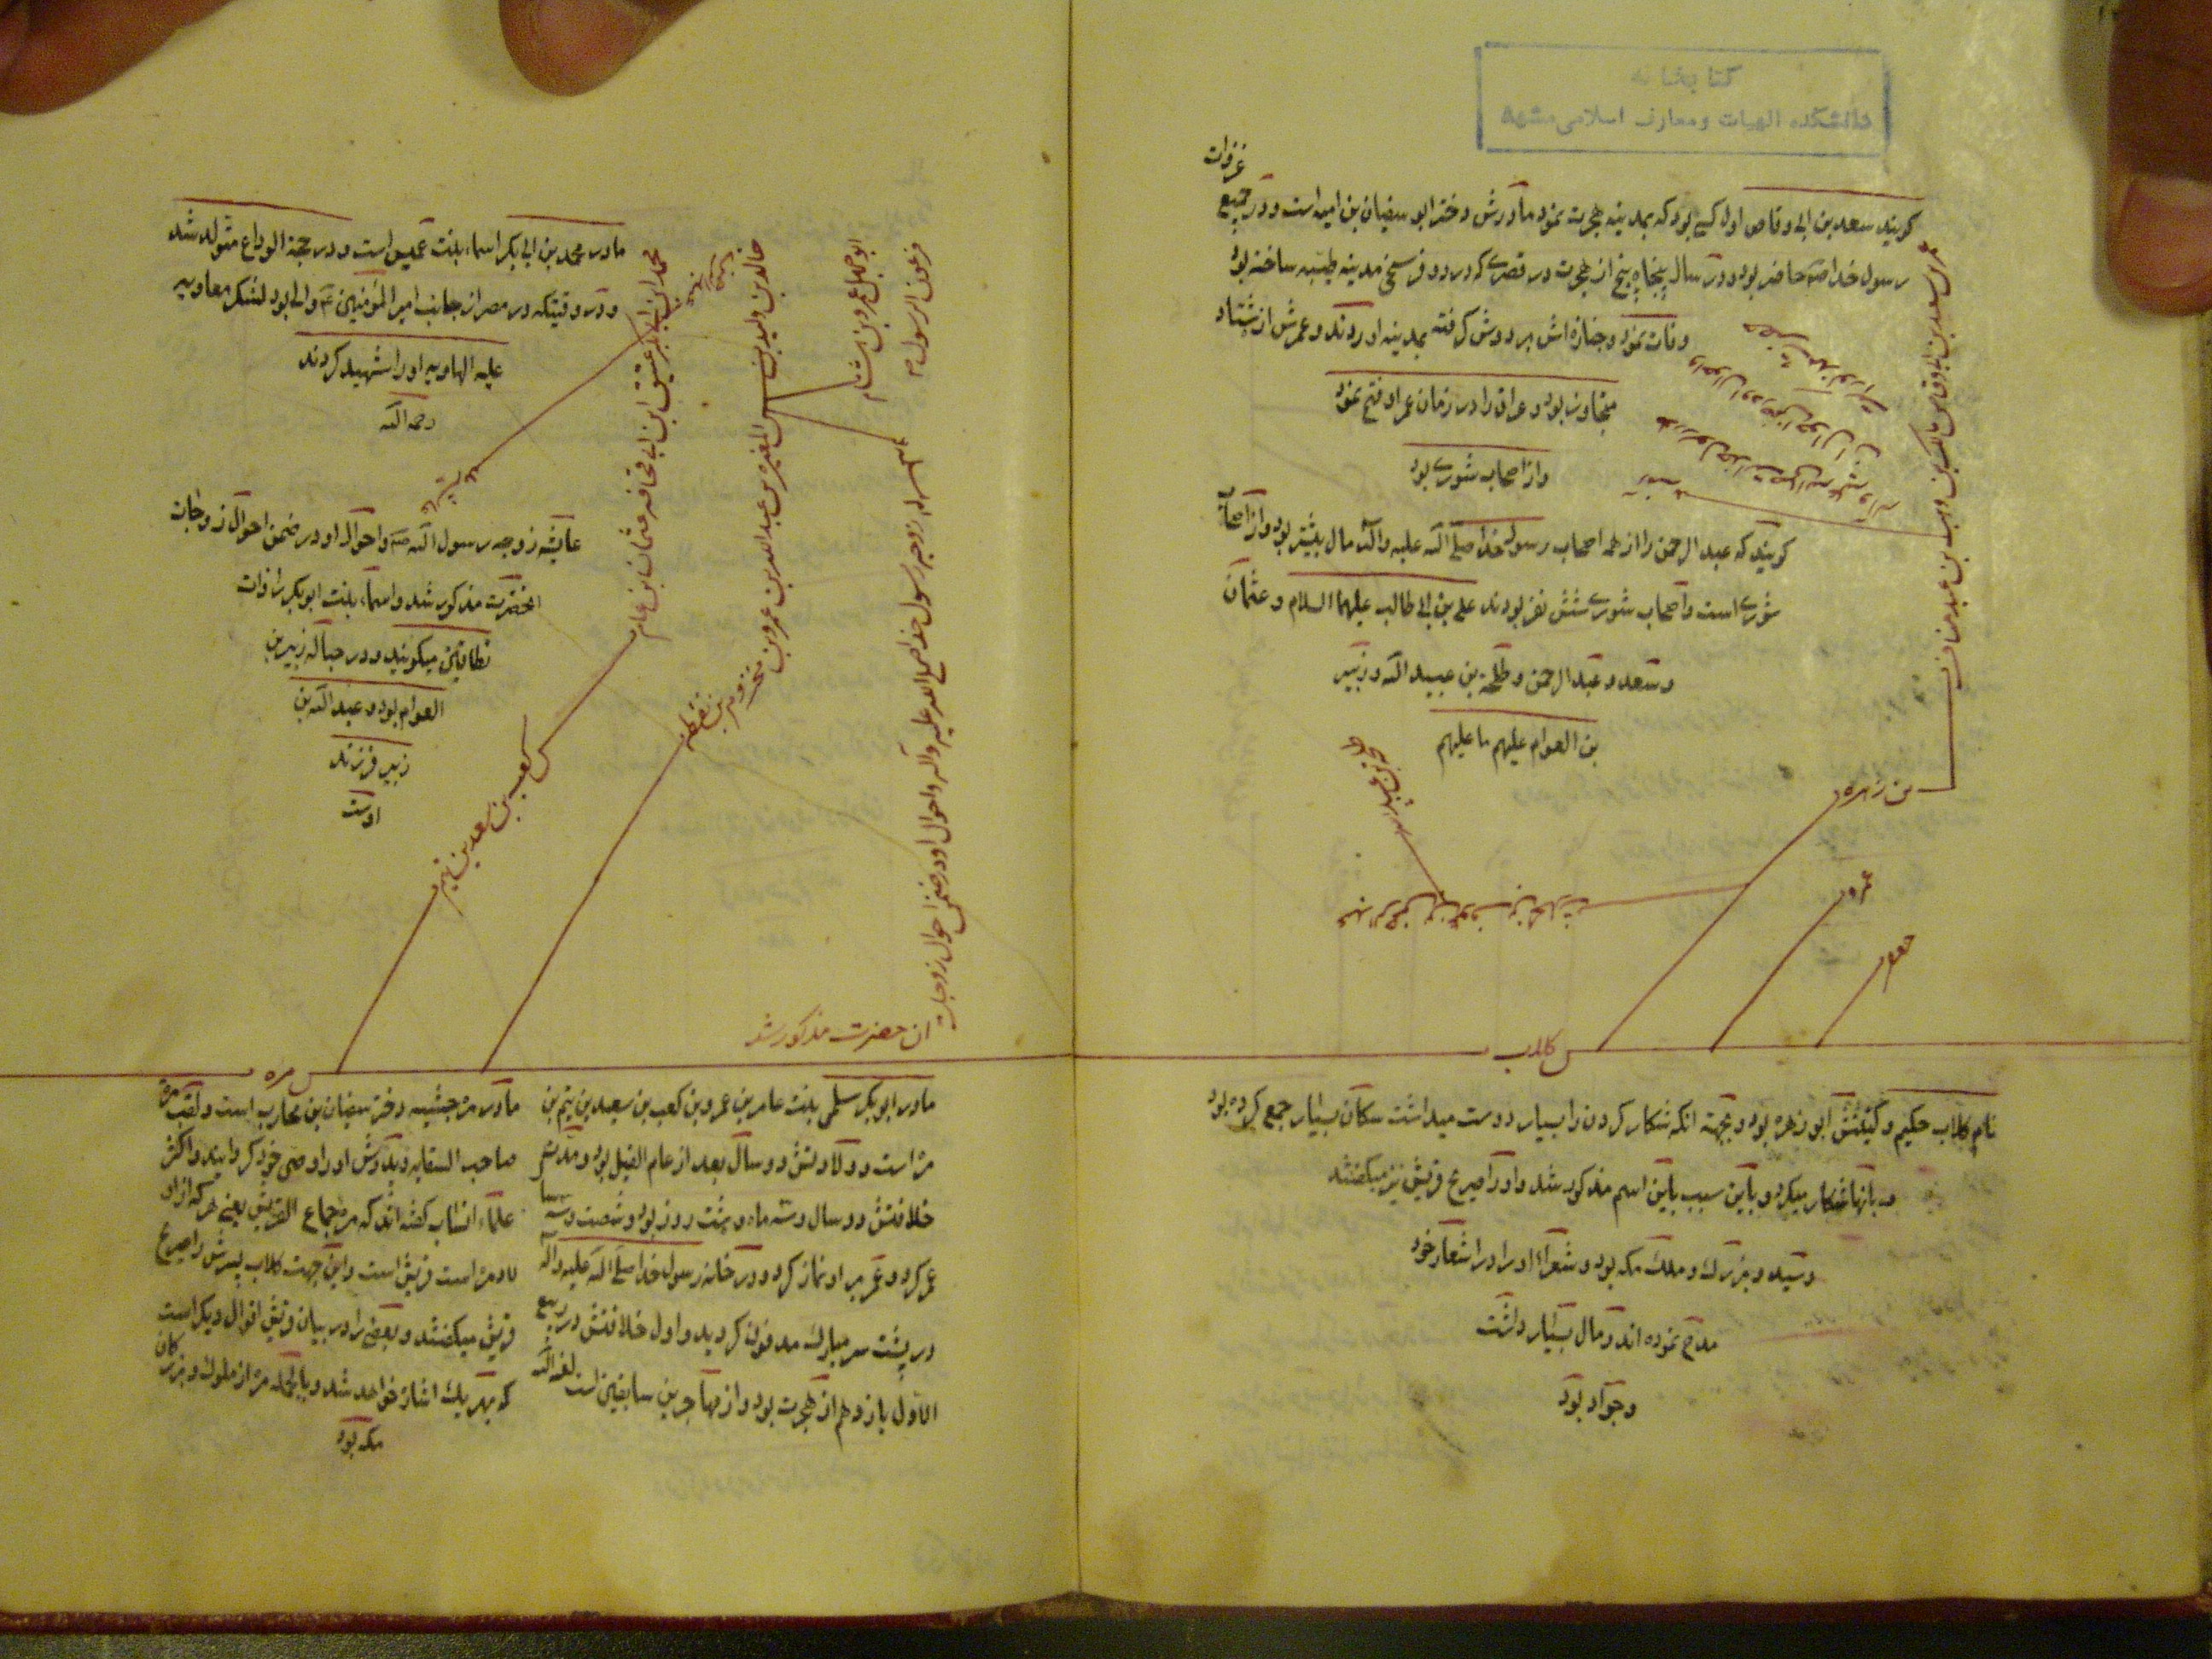 کتابخانه
دانشکده الهیات و معارف اسلامی مشهد
غزوات
کویند سعد بن ابی وقاص اول کسے بود که بمدینه هجرت نمود مادرش دختر ابو سفیان بن امیه است و در جمیع
رسول خدا صم حاضر بود و در سال پنجاه پنج از هجرت در قصرے که در دو فرسخی مدینه طیبه ساخته بود
وفات نمود و جنازه اش بر دوش کرفته بمدینه اوردند و عمرش از هشتاد
متجاوز بود و عراق را در زمان عمر او فتح نموده
و از اصحاب شورے بود
کویند که عبد الرحمن را از همه اصحاب رسول خدا صلے الله علیه واله مال بیشتر بود و از اصحاب
شورے است و اصحاب شورے شش نفر بودند علے بن ابی طالب علیهما السلام و عثمان
و سعد و عبد الرحمن و طلحة بن عبید الله و زبیر
بن العوام علیهم ما علیهم
عمر بن سعد بن ابی وقاص مالک بن وهب بن عبد مناف
بن زهره
عبد الرحمن بن عوف بن الحارث
عمرو
جعفر
بن کلاب
نام کلاب حکیم و کنیتش ابو زهره بود و بجهة انکه شکار کردن را بسیار دوست میداشت سکان بسیار جمع کرده بود
و بانها شکار میکرد و باین سبب باین اسم مذکور شد و او را صریح قریش نیز میکفتند
و سید و بزرك و ملك مکه بود و شعراء او را در اشعار خود
مدح نموده اند و مال بسیار داشت
و جواد بود
مادر محمد بن ابی بکر اسماء بنت عمیس است و در حجة الوداع متولد شد
و در وقتیکه در مصر از جانب امیر المؤمنین ع والی بود لشکر معاویه
علیه الهاویه او را شهید کردند
رحمه الله
عایشه زوجه رسول الله صم و احوال او در ضمن احوال زوجات
انحضرت مذکور شد و اسماء بنت ابو بکر را ذات
نطاقین میکویند و در حباله زبیر بن
العوام بود و عبد الله بن
زبیر فرزند
اوست
محمد ابن ابی بکر عتیق ابن ابی قحافه عثمان بن عامر
کعب بن سعد بن تیم
خالد بن ولید بن المغیره بن عبد الله بن عمرو بن
مخزوم بن یقظه
ابو جهل عمرو بن هشام
فرعون الرسول
ام سلمه زوجه رسول خدا صلی الله علیه وآله واحوال او در ضمن احوال زوجات
ان حضرت مذکور شد
بن مره
مادر ابو بکر سلمی بنت عامر بن عمرو بن کعب بن سعید بن تیم بن
مره است و ولادتش دو سال بعد از عام الفیل بود و مدت
خلافتش دو سال و سه ماه و هشت روز بود و شصت و سه سال
عمر کرد و عمر بر او نماز کرد و در خانه رسول خدا صلے الله علیه واله
در پشت سر مبارك مدفون کردید و اول خلافتش در ربیع
الاول یازدهم از هجرت بود و از مهاجرین سابقین است
مادر مره حبشیه دختر سفیان بن محارب است و لقب مره
صاحب السقایه و پدرش او را وصی خود کردانید و اکثر
علماء انساب کفته اند که مره جماع القریش یعنی هر که از او
لاد مره است قریش است و این جهت کلاب پسرش را صریح
قریش میکفتند و بعضی را در بیان قریش اقوال دیکر است
که بهر یك اشاره خواهد شد و بالجمله مره از ملوك و بزرکان
مکه بود